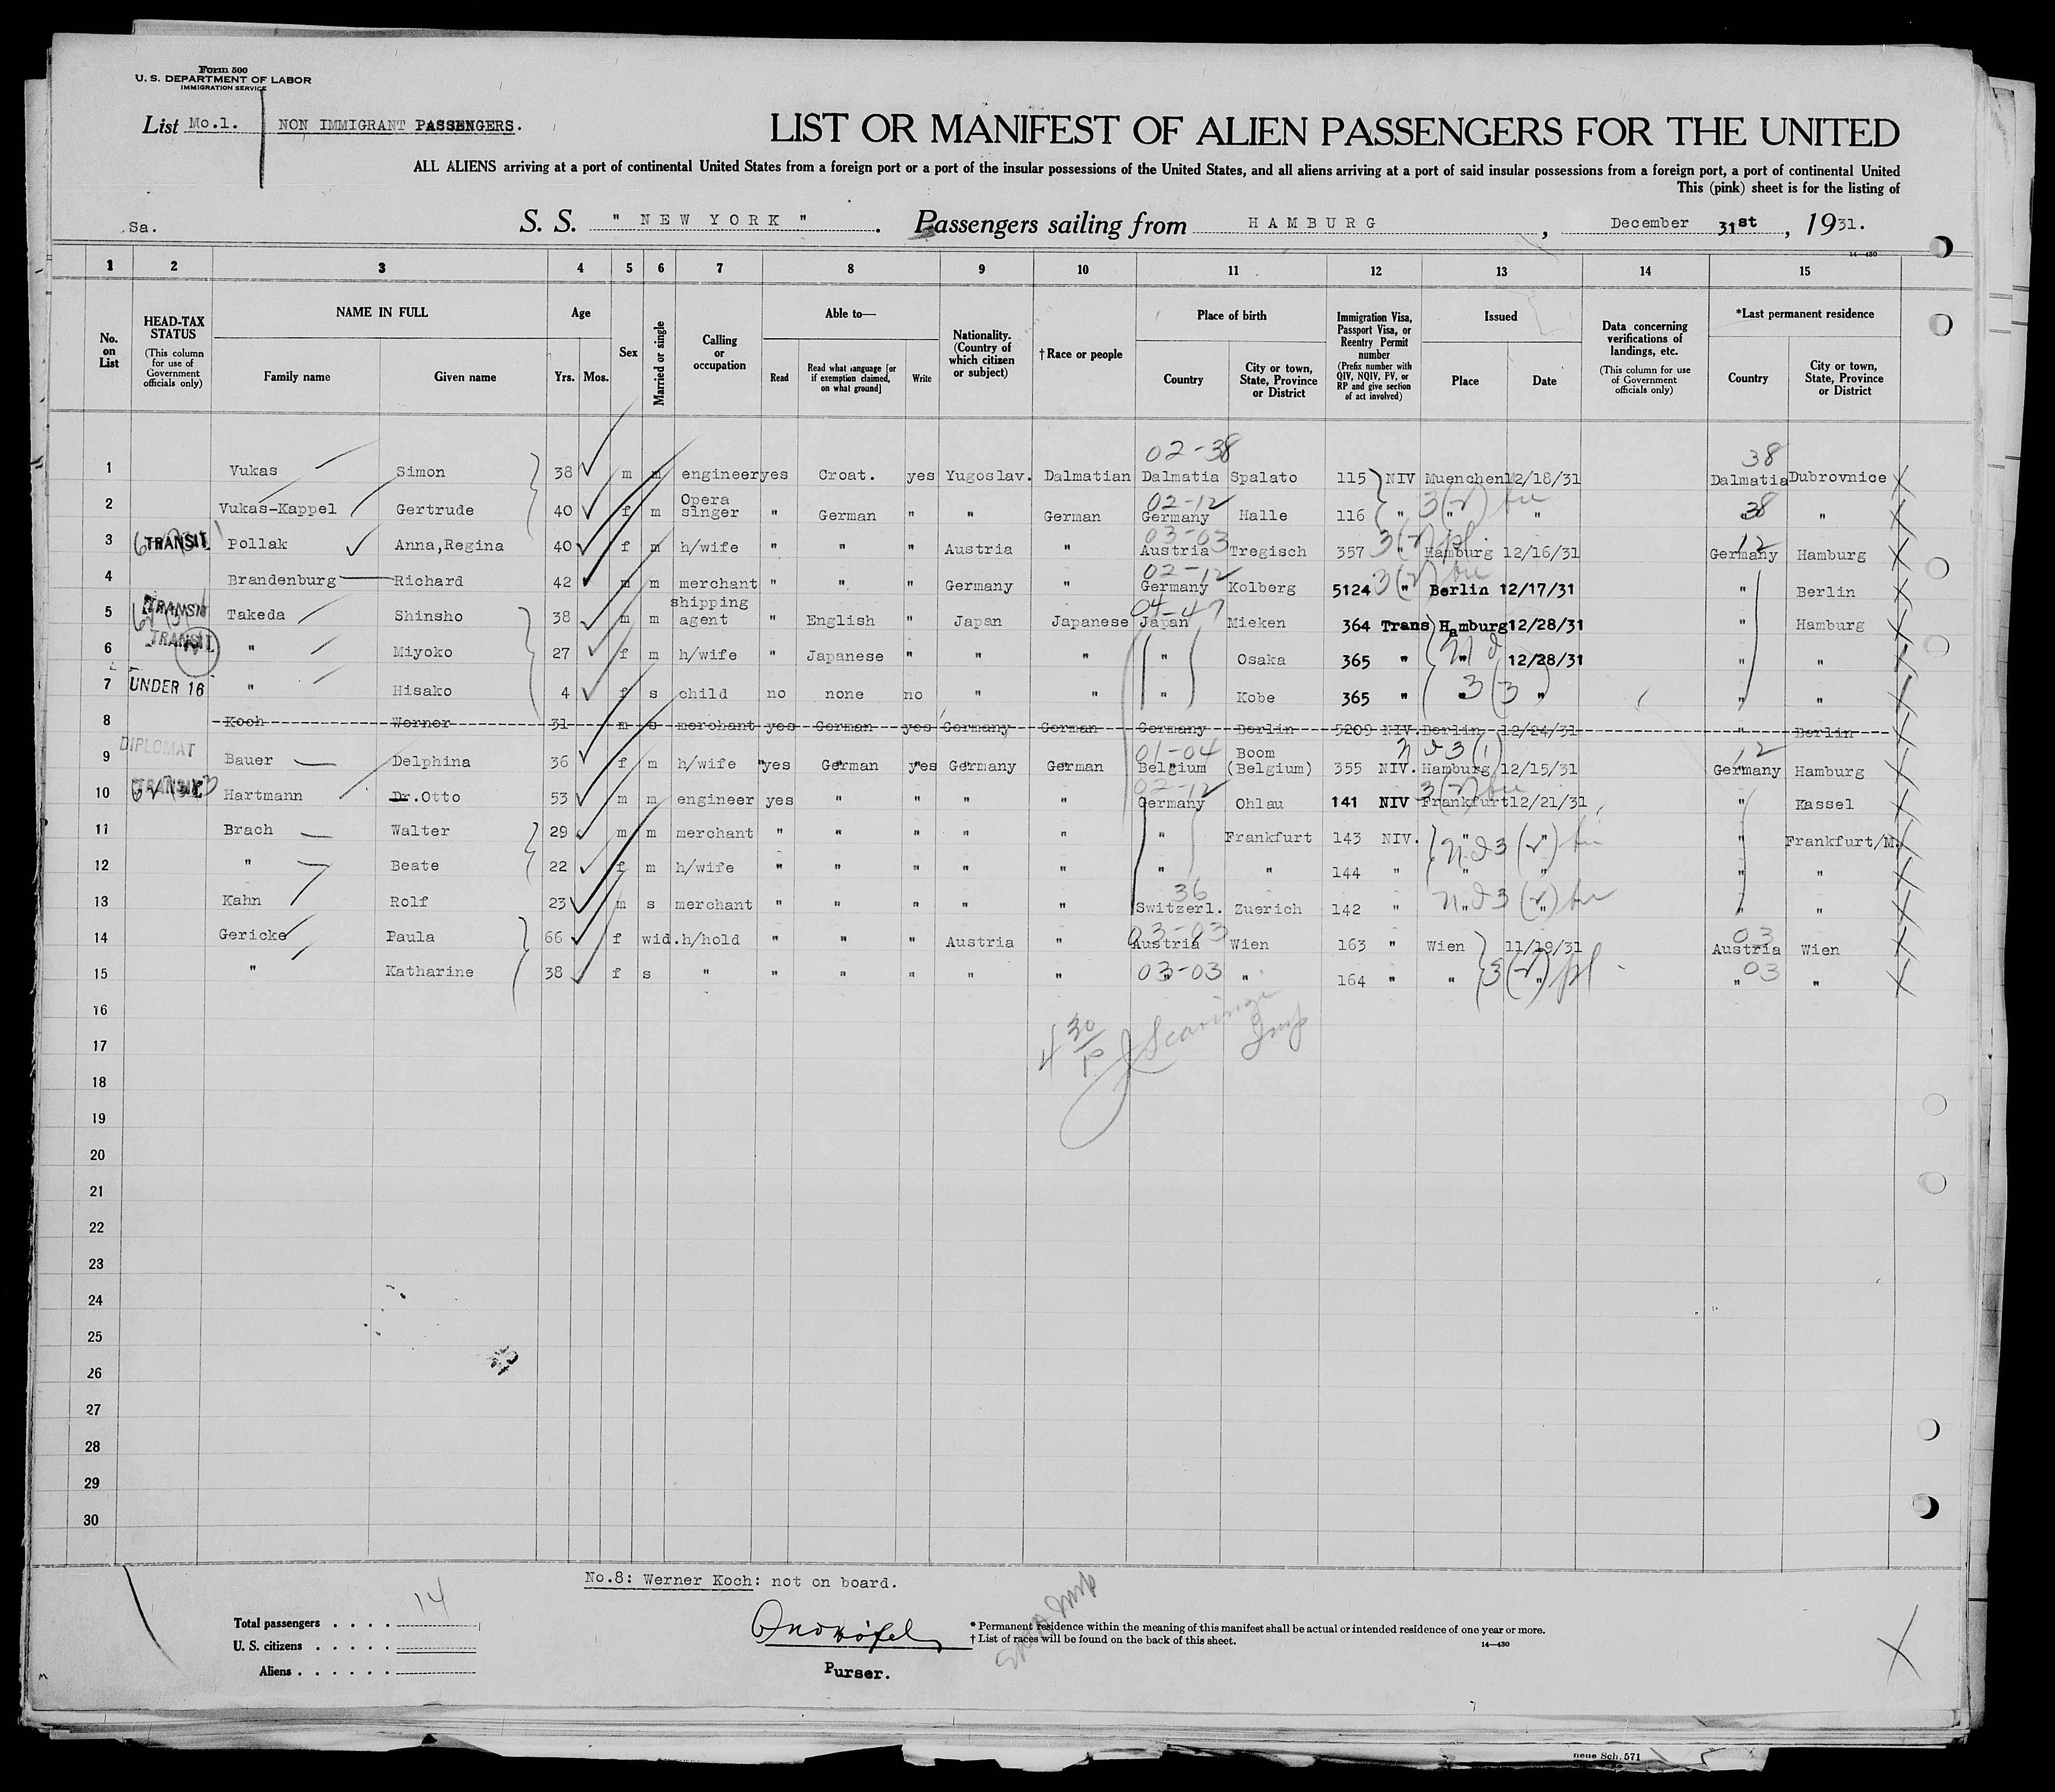 Form 500
U. S. DEPARTMENT OF LABOR
IMMIGRATION SERVICE
List Mo.1. NON IMMIGRANT PASSENGERS.
LIST OR MANIFEST OF ALIEN PASSENGERS FOR THE UNITED
ALL ALIENS arriving at a port of continental United States from a foreign port or a port of the insular possessions of the United States, and all aliens arriving at a port of said insular possessions from a foreign port, a port of continental United
This (pink) sheet is for the listing of
Sa. S. S. " NEW YORK " . Passengers sailing from HAMBURG , December 31st , 1931.
14—430
1 2 3 4 5 6 7 8 9 10 11 12 13 14 15
No. on List
HEAD-TAX STATUS (This column for use of Government officials only)
NAME IN FULL Family name Given name
Age Yrs. Mos.
Sex
Married or single
Calling or occupation
Able to— Read Read what language [or if exemption claimed, on what ground] Write
Nationality. (Country of which citizen or subject)
†Race or people
Place of birth Country City or town, State, Province or District
Immigration Visa, Passport Visa, or Reentry Permit number (Prefix number with QIV, NQIV, PV, or RP and give section of act involved)
Issued Place Date
Data concerning verifications of landings, etc. (This column for use of Government officials only)
*Last permanent residence Country City or town, State, Province or District
02-38 38
1 Vukas Simon 38 m m engineer yes Croat. yes Yugoslav. Dalmatian Dalmatia Spalato 115 NIV Muenchen 12/18/31 Dalmatia Dubrovnice
02-12 3(2) 38
2 Vukas-Kappel Gertrude 40 f m Opera singer " German " " German Germany Halle 116 " " " " "
03-03 3(2) pl 12
3 TRANSIT Pollak Anna,Regina 40 f m h/wife " " " Austria " Austria Tregisch 357 " Hamburg 12/16/31 Germany Hamburg
02-12 3(2)
4 Brandenburg Richard 42 m m merchant " " " Germany " Germany Kolberg 5124 " Berlin 12/17/31 " Berlin
04-47
5 TRANSIT Takeda Shinsho 38 m m shipping agent " English " Japan Japanese Japan Mieken 364 Trans Hamburg 12/28/31 " Hamburg
6 TRANSIT " Miyoko 27 f m h/wife " Japanese " " " " Osaka 365 " " 12/28/31 " "
7 UNDER 16 " Hisako 4 f s child no none no " " " Kobe 365 " " 3(3) " " "
8 Koch Werner 31 m s merchant yes German yes Germany German Germany Berlin 5209 NIV. Berlin 12/24/31 " Berlin
DIPLOMAT 01-04 3(1) 12
9 Bauer Delphina 36 f m h/wife yes German yes Germany German Belgium Boom (Belgium) 355 NIV. Hamburg 12/15/31 Germany Hamburg
02-12 3(2)
10 TRANSIT Hartmann Dr.Otto 53 m m engineer yes " " " " Germany Ohlau 141 NIV Frankfurt 12/21/31 " Kassel
11 Brach Walter 29 m m merchant " " " " " " Frankfurt 143 NIV. " " " Frankfurt/M.
12 " Beate 22 f m h/wife " " " " " " " 144 " " " " "
36
13 Kahn Rolf 23 m s merchant " " " " " Switzerl. Zuerich 142 " " " " "
03-03 03
14 Gericke Paula 66 f wid. h/hold " " " Austria " Austria Wien 163 " Wien 11/19/31 Austria Wien
03-03 3(2) pl 03
15 " Katharine 38 f s " " " " " " " " 164 " " " " "
16
4 30/P J Scaringe Insp
17
18
19
20
21
22
23
24
25
26
27
28
29
30
No.8: Werner Koch: not on board.
Total passengers . . . . 14
U. S. citizens . . . . .
Aliens . . . . . .
Purser.
* Permanent residence within the meaning of this manifest shall be actual or intended residence of one year or more.
† List of races will be found on the back of this sheet.
14—430
neue Sch. 571